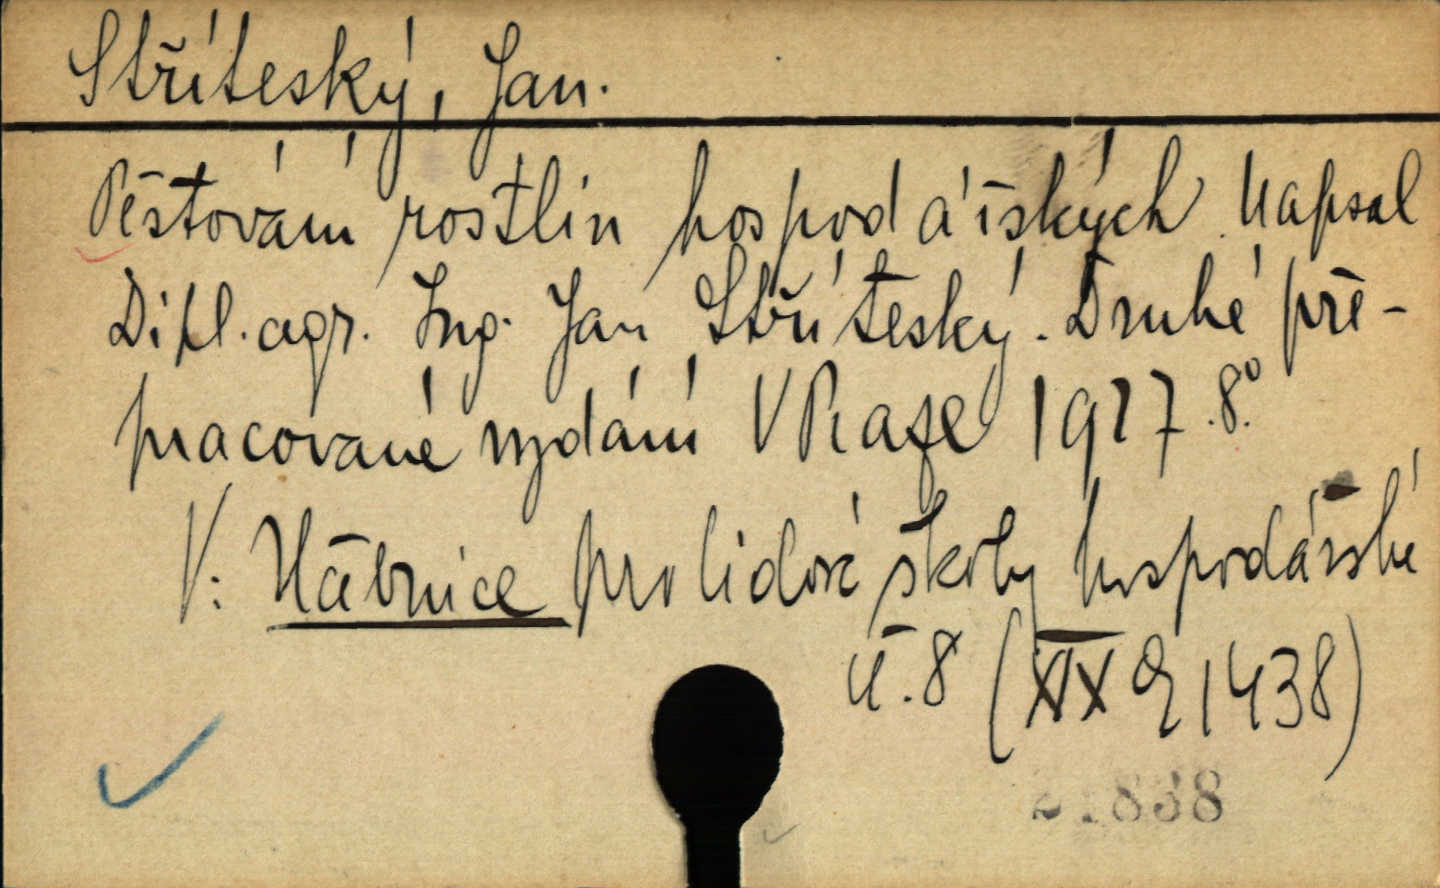 Stříteský, Jan.
Pěstování rostlin hospodářských. Napsal
Dipl. agr. Ing. Jan Stříteský. Druhé pře-
pracované vydání V Praze 1927. 8°.
V: Učebnice pro lidové školy hospodářské
č. 8 (XIX Q 1438)